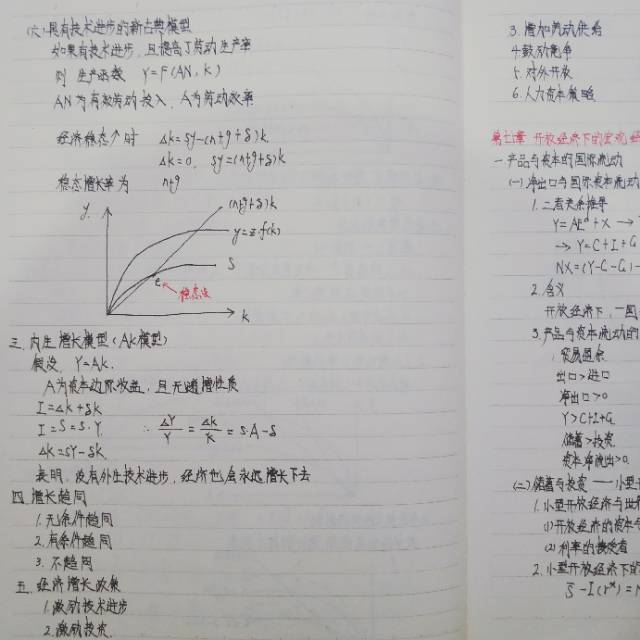 (六).具有技术进步的新古典模型
如果有技术进步，且提高了劳动生产率
则 生产函数 Y=F(AN,K)
AN为有效劳动投入，A为劳动效率
经济稳态个时 Δk=sy-(n+g+δ)k
Δk=0, sy=(n+g+δ)k
稳态增长率为 n+g
y
(n+g+δ)k
y=z·f(k)
S
e
稳态点
k
三.内生增长模型(Ak模型)
假设, Y=Ak.
A为资本边际收益，且无递增性质
I=Δk+δk
I=S=s·Y. ∴ ΔY/Y = Δk/k = s·A-δ
Δk=sY-δk.
表明，没有外生技术进步，经济也会永远增长下去
四.增长趋同
1.无条件趋同
2.有条件趋同
3.不趋同
五.经济增长政策
1.激励技术进步
2.激励投资.
3.增加劳动供给
4.鼓励竞争
5.对外开放
6.人力资本策略
第七章 开放经济下的宏观经
一.产品与资本的国际流动
(一)净出口与国际资本流动
1.二者关系推导
Y=AE^d+X →
→ Y=C+I+G
NX=(Y-C-G)-
2.含义
开放经济下，一国
3.产品与资本流动的
贸易盈余
出口>进口
净出口>0
Y>C+I+G
储蓄>投资
资本净流出>0.
(二)储蓄与投资——小型开
1.小型开放经济与世
(1)开放经济的资本
(2)利率的接受者
2.小型开放经济下的
S-I(r*)=N